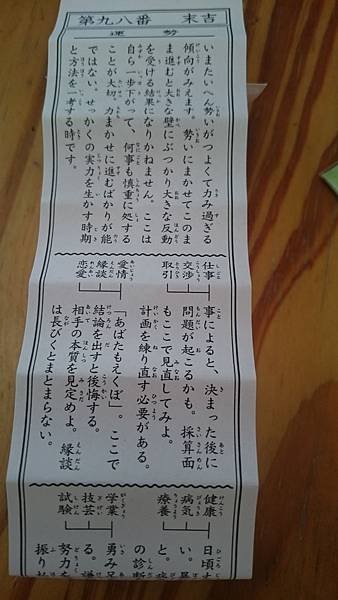 第九八番 末吉
運勢
いまたいへん勢いがつよくて力み過ぎる
傾向がみえます。勢いにまかせてこのま
ま進むと大きな壁にぶつかり大きな反動
を受ける結果になりかねません。ここは
自ら一歩下がって、何事も慎重に処する
ことが大切。力まかせに進むばかりが能
ではない。せっかくの実力を生かす時期
と方法を一考する時です。
仕事
交渉
取引
事によると、決まった後に
問題が起こるかも。採算面
もここで見直してみよ。
計画を練り直す必要がある。
愛情
縁談
恋愛
「あばたもえくぼ」。ここで
結論を出すと後悔する。
相手の本質を見定めよ。縁談
は長びくとまとまらない。
健康
病気
療養
日頃
い。
と。
の診断
学業
技芸
試験
勇み足
る。
努力を
振り